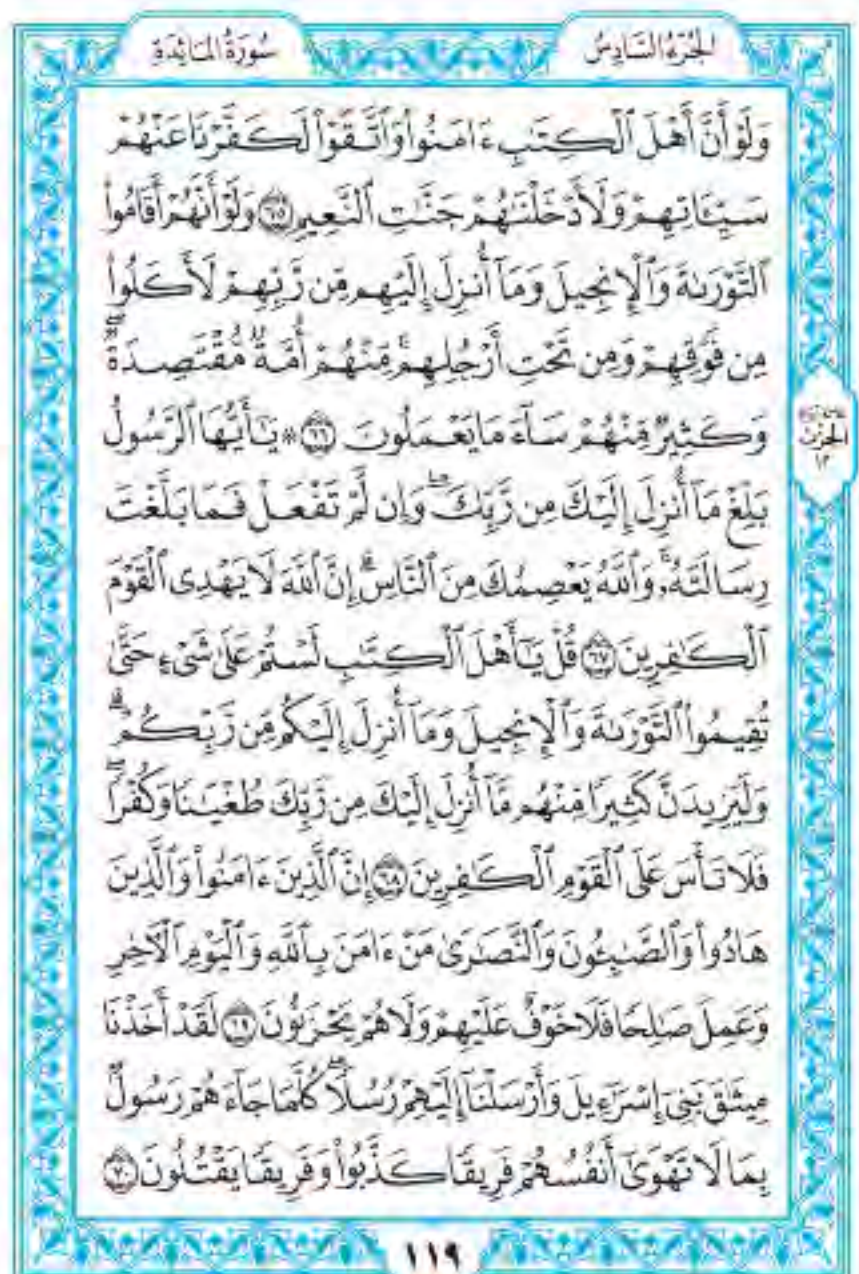 سُورَةُ المَائدَةِ
الجُزْءُ السَّادِسُ
وَلَوْ أَنَّ أَهْلَ ٱلْكِتَٰبِ ءَامَنُوا۟ وَٱتَّقَوْا۟ لَكَفَّرْنَا عَنْهُمْ
سَيِّـَٔاتِهِمْ وَلَأَدْخَلْنَٰهُمْ جَنَّٰتِ ٱلنَّعِيمِ ٦٥ وَلَوْ أَنَّهُمْ أَقَامُوا۟
ٱلتَّوْرَىٰةَ وَٱلْإِنجِيلَ وَمَآ أُنزِلَ إِلَيْهِم مِّن رَّبِّهِمْ لَأَكَلُوا۟
مِن فَوْقِهِمْ وَمِن تَحْتِ أَرْجُلِهِم ۚ مِّنْهُمْ أُمَّةٌ مُّقْتَصِدَةٌ ۖ
وَكَثِيرٌ مِّنْهُمْ سَآءَ مَا يَعْمَلُونَ ٦٦ ۞ يَٰٓأَيُّهَا ٱلرَّسُولُ
بَلِّغْ مَآ أُنزِلَ إِلَيْكَ مِن رَّبِّكَ ۖ وَإِن لَّمْ تَفْعَلْ فَمَا بَلَّغْتَ
رِسَالَتَهُۥ ۚ وَٱللَّهُ يَعْصِمُكَ مِنَ ٱلنَّاسِ ۗ إِنَّ ٱللَّهَ لَا يَهْدِى ٱلْقَوْمَ
ٱلْكَٰفِرِينَ ٦٧ قُلْ يَٰٓأَهْلَ ٱلْكِتَٰبِ لَسْتُمْ عَلَىٰ شَىْءٍ حَتَّىٰ
تُقِيمُوا۟ ٱلتَّوْرَىٰةَ وَٱلْإِنجِيلَ وَمَآ أُنزِلَ إِلَيْكُم مِّن رَّبِّكُمْ ۗ
وَلَيَزِيدَنَّ كَثِيرًا مِّنْهُم مَّآ أُنزِلَ إِلَيْكَ مِن رَّبِّكَ طُغْيَٰنًا وَكُفْرًا ۖ
فَلَا تَأْسَ عَلَى ٱلْقَوْمِ ٱلْكَٰفِرِينَ ٦٨ إِنَّ ٱلَّذِينَ ءَامَنُوا۟ وَٱلَّذِينَ
هَادُوا۟ وَٱلصَّٰبِـُٔونَ وَٱلنَّصَٰرَىٰ مَنْ ءَامَنَ بِٱللَّهِ وَٱلْيَوْمِ ٱلْـَٔاخِرِ
وَعَمِلَ صَٰلِحًا فَلَا خَوْفٌ عَلَيْهِمْ وَلَا هُمْ يَحْزَنُونَ ٦٩ لَقَدْ أَخَذْنَا
مِيثَٰقَ بَنِىٓ إِسْرَٰٓءِيلَ وَأَرْسَلْنَآ إِلَيْهِمْ رُسُلًا ۖ كُلَّمَا جَآءَهُمْ رَسُولٌۢ
بِمَا لَا تَهْوَىٰٓ أَنفُسُهُمْ فَرِيقًا كَذَّبُوا۟ وَفَرِيقًا يَقْتُلُونَ ٧٠
الحِزْبُ
١٢
١١٩